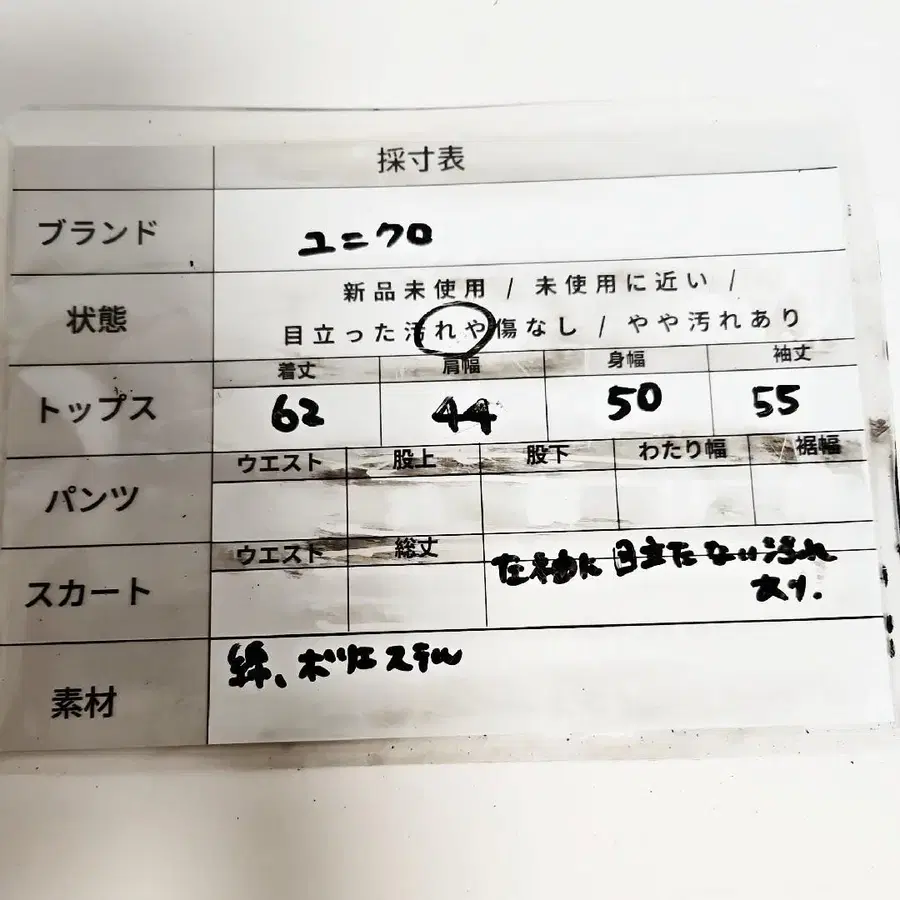 採寸表
ブランド ユニクロ
状態 新品未使用 / 未使用に近い /
目立った汚れや傷なし / やや汚れあり
着丈 肩幅 身幅 袖丈
トップス 62 44 50 55
ウエスト 股上 股下 わたり幅 裾幅
パンツ
ウエスト 総丈
スカート 左袖に目立たない汚れ
あり.
素材 綿、ポリエステル